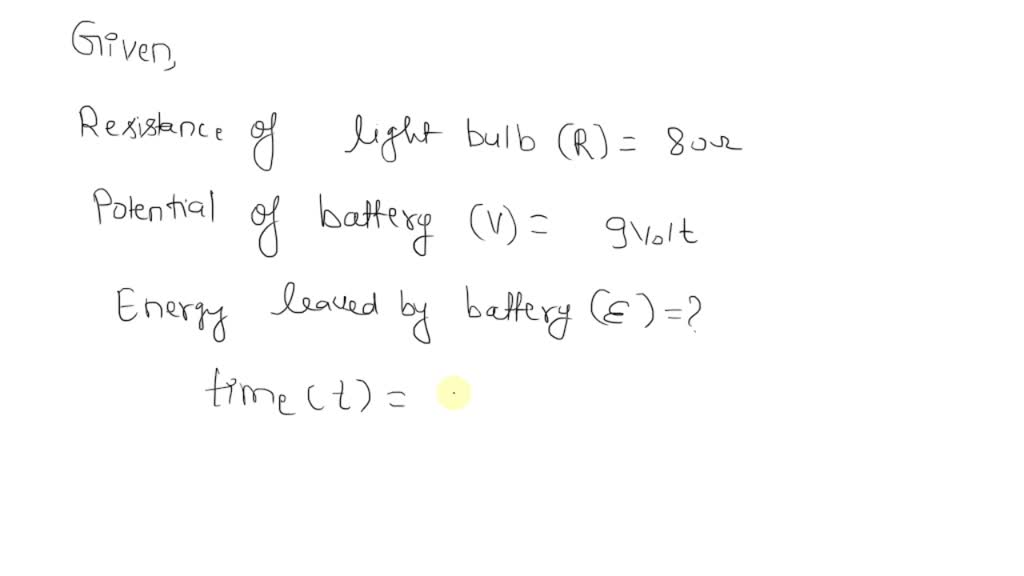 Given,
Resistance of light bulb (R) = 80Ω
Potential of battery (V) = 9Volt
Energy leaved by battery (ε) = ?
time (t) =